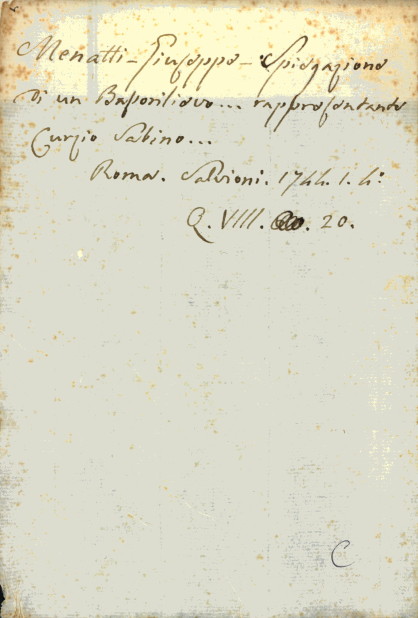 Menatti - Giuseppe - Spiegazione
di un Basorilievo... rappresentante
Curzio Sabino...
Roma. Salvioni. 1744. 1. 4°
Q. VIII. 20.
C